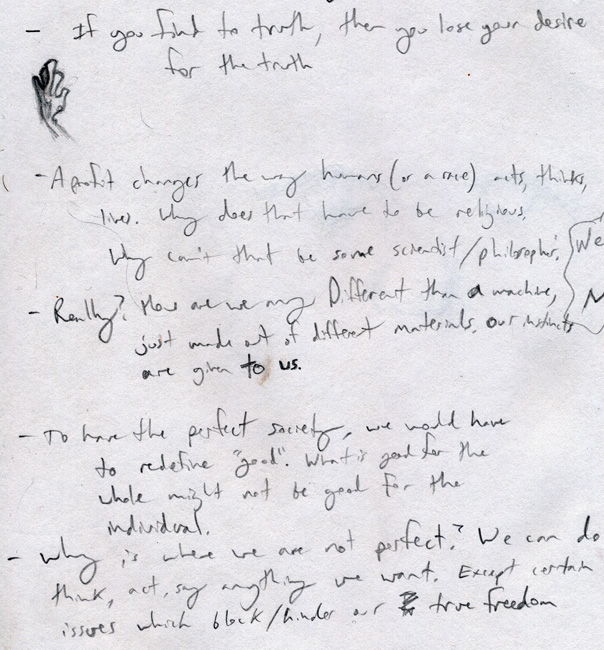 - If you find to truth, then you lose your desire
for the truth
- A profit changes the way humans (or a race) acts, thinks,
lives. Why does that have to be religious.
Why can't that be some scientist/philosopher.
We
- Really? How are we any Different than a machine,
N
just made out of different materials. our instincts
are given to us.
- To have the perfect society, we would have
to redefine "good". What is good for the
whole might not be good for the
individual.
- Why is where we are not perfect? We can do
think, act, say anything we want. Except certain
issues which block/hinder our true freedom